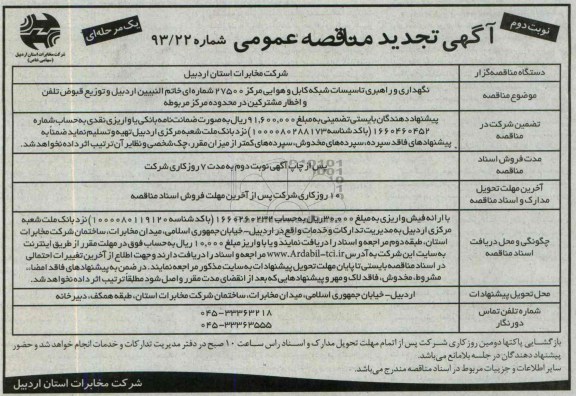 نوبت دوم
آگهی تجدید مناقصه عمومی شماره ۹۳/۲۲
یک مرحله‌ای
شرکت مخابرات استان اردبیل
(سهامی خاص)
دستگاه مناقصه‌گزار
شرکت مخابرات استان اردبیل
موضوع مناقصه
نگهداری و راهبری تاسیسات شبکه کابل و هوایی مرکز ۲۷۵۰۰ شماره‌ای خاتم النبیین اردبیل و توزیع قبوض تلفن
و اخطار مشترکین در محدوده مرکز مربوطه
تضمین شرکت در
مناقصه
پیشنهاددهندگان بایستی تضمینی به مبلغ ۹۱,۶۰۰,۰۰۰ ریال به صورت ضمانت‌نامه بانکی یا واریزی نقدی به حساب شماره
۱۶۶۰۴۶۰۴۵۲ (با کد شناسه ۱۰۰۰۰۸۰۲۸۸۱۷۳) نزد بانک ملت شعبه مرکزی اردبیل تهیه و تسلیم نماید ضمناً به
پیشنهادهای فاقد سپرده، سپرده‌های مخدوش، سپرده‌های کمتر از میزان مقرر، چک شخصی و نظایر آن ترتیب اثر داده نخواهد شد.
مدت فروش اسناد
مناقصه
پس از چاپ آگهی نوبت دوم به مدت ۷ روز کاری شرکت
آخرین مهلت تحویل
مدارک و اسناد مناقصه
۱۰ روز کاری شرکت پس از آخرین مهلت فروش اسناد مناقصه
چگونگی و محل دریافت
اسناد مناقصه
با ارائه فیش واریزی به مبلغ ۳۰,۰۰۰ ریال به حساب ۱۶۶۰۴۶۰۲۳۲ (با کد شناسه ۱۰۰۰۰۸۰۱۱۹۱۲۰) نزد بانک ملت شعبه
مرکزی اردبیل به مدیریت تدارکات و خدمات واقع در اردبیل- خیابان جمهوری اسلامی، میدان مخابرات، ساختمان شرکت مخابرات
استان، طبقه دوم مراجعه و اسناد را دریافت نمایند و یا با واریز مبلغ ۱۰,۰۰۰ ریال به حساب فوق در مهلت مقرر از طریق اینترنت
به سایت این شرکت به آدرس www.Ardabil-tci.ir مراجعه و اسناد را دریافت دارند و جهت اطلاع از آخرین تغییرات احتمالی
در اسناد مناقصه بایستی تا پایان مهلت تحویل پیشنهادات به سایت مذکور مراجعه نمایند. در ضمن به پیشنهادهای فاقد امضاء،
مشروط، مخدوش، فاقد لاک و مهر و پیشنهادهایی که بعد از انقضای مدت مقرر واصل شود مطلقاً ترتیب اثر داده نخواهد شد.
محل تحویل پیشنهادات
اردبیل- خیابان جمهوری اسلامی، میدان مخابرات، ساختمان شرکت مخابرات استان، طبقه همکف، دبیرخانه
شماره تلفن تماس
دورنگار
۰۴۵-۳۳۳۶۳۲۱۸
۰۴۵-۳۳۳۶۳۵۵۵
بازگشایی پاکتها دومین روز کاری شرکت پس از اتمام مهلت تحویل مدارک و اسناد راس ساعت ۱۰ صبح در دفتر مدیریت تدارکات و خدمات انجام خواهد شد و حضور
پیشنهاد دهندگان در جلسه بلامانع می‌باشد.
سایر اطلاعات و جزییات مربوط در اسناد مناقصه مندرج می‌باشد.
شرکت مخابرات استان اردبیل